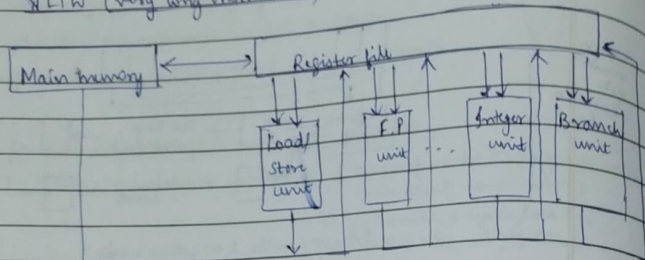 VLIW (Very long
Main memory
Register file
Load/
store
unit
F.P
unit
...
Integer
unit
Branch
unit